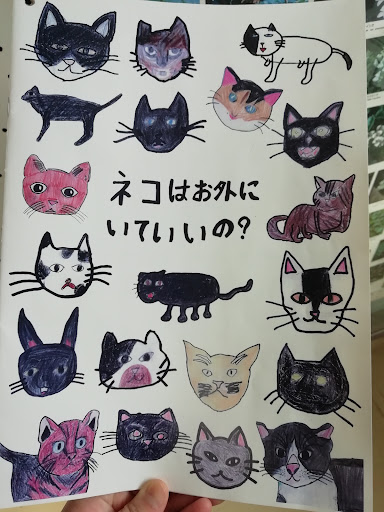 ネコはお外に
いていいの?